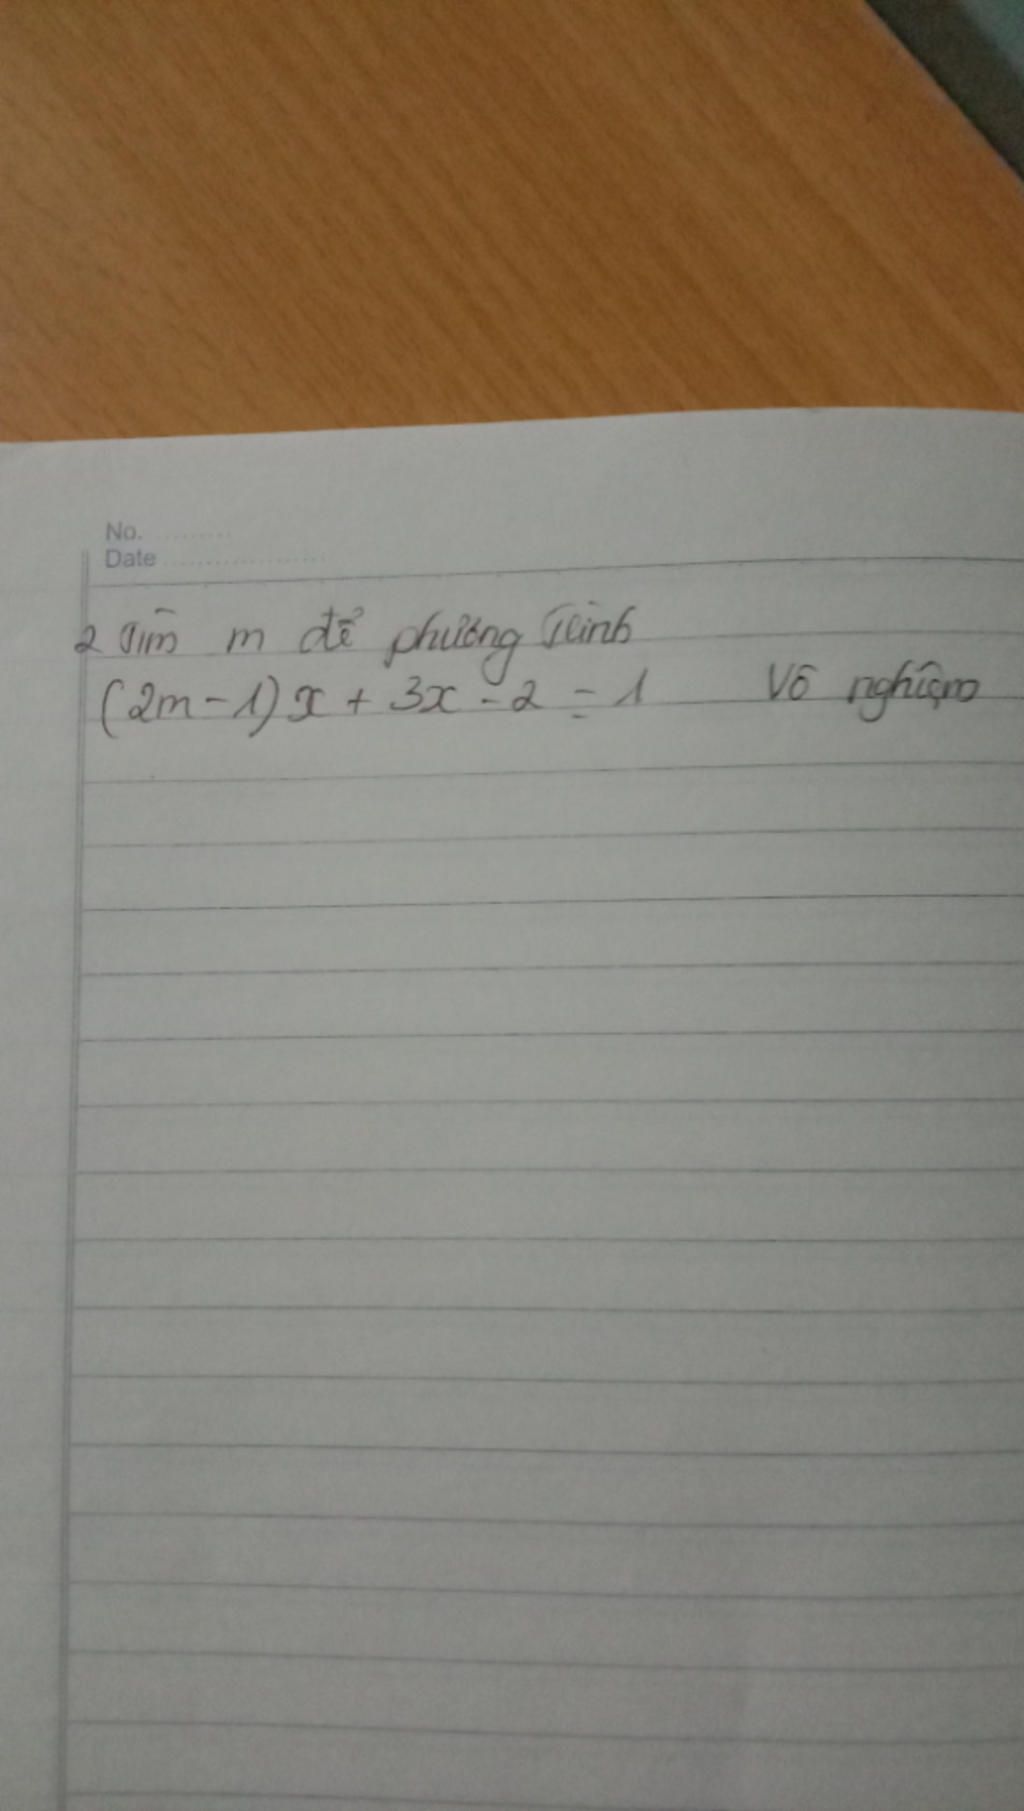 No. ..........
Date ....................
2 Tìm m để phương trình
(2m - 1)x + 3x - 2 = 1 Vô nghiệm